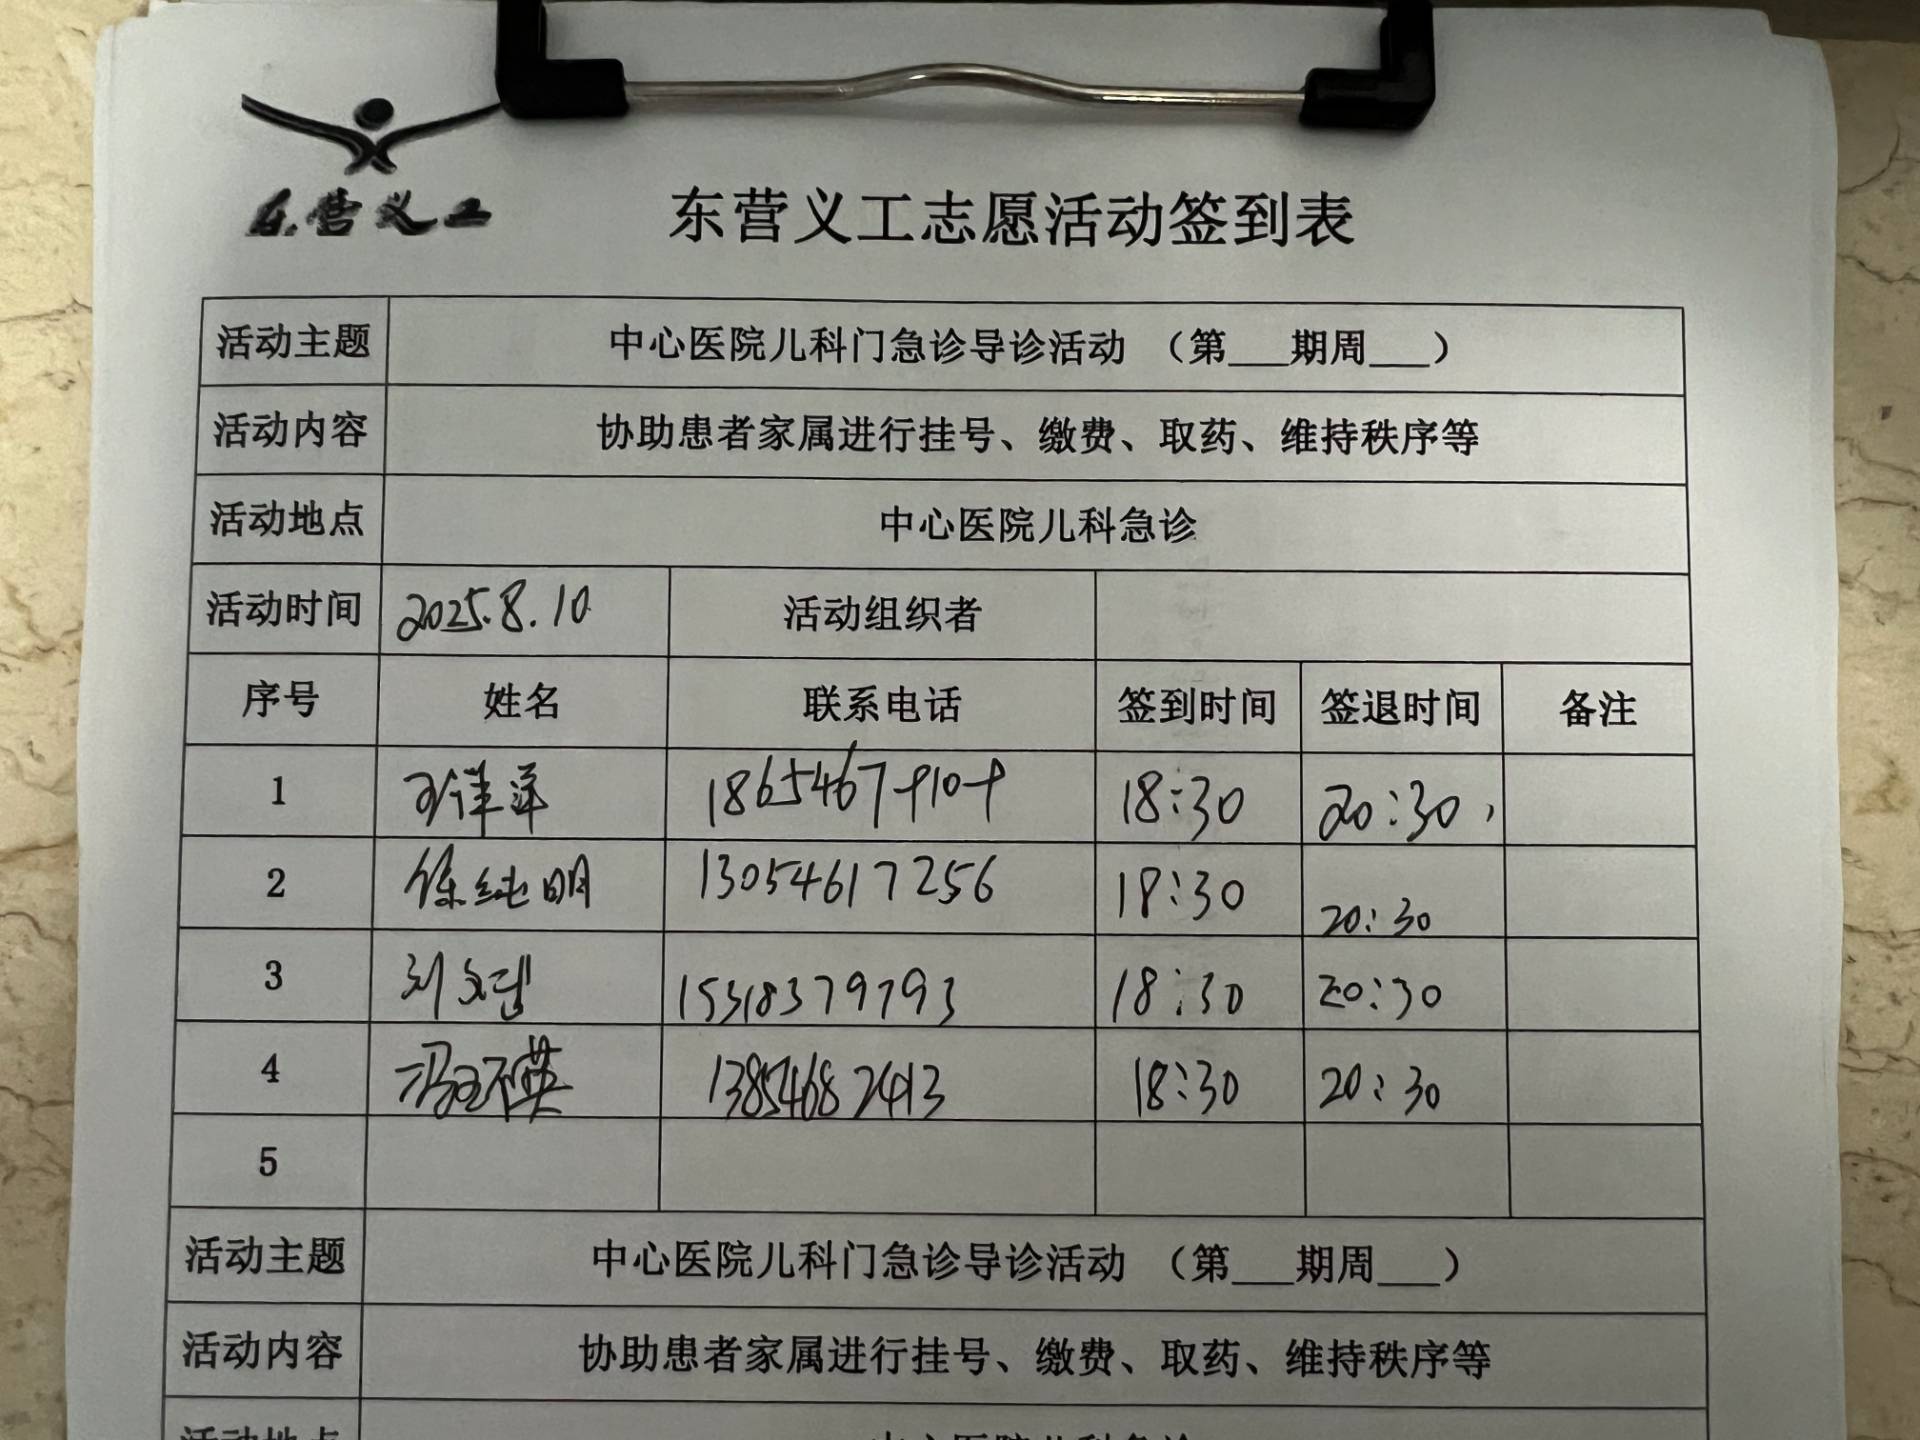 东营义工
东营义工志愿活动签到表
活动主题 中心医院儿科门急诊导诊活动 （第___期周___）
活动内容 协助患者家属进行挂号、缴费、取药、维持秩序等
活动地点 中心医院儿科急诊
活动时间 2025.8.10 活动组织者
序号 姓名 联系电话 签到时间 签退时间 备注
1 王洋洋 18:30 20:30
2 徐纯明 13054617256 18:30 20:30
3 刘文 15318379793 18:30 20:30
4 冯 英 13854682413 18:30 20:30
5
活动主题 中心医院儿科门急诊导诊活动 （第___期周___）
活动内容 协助患者家属进行挂号、缴费、取药、维持秩序等
活动地点 中心医院儿科急诊